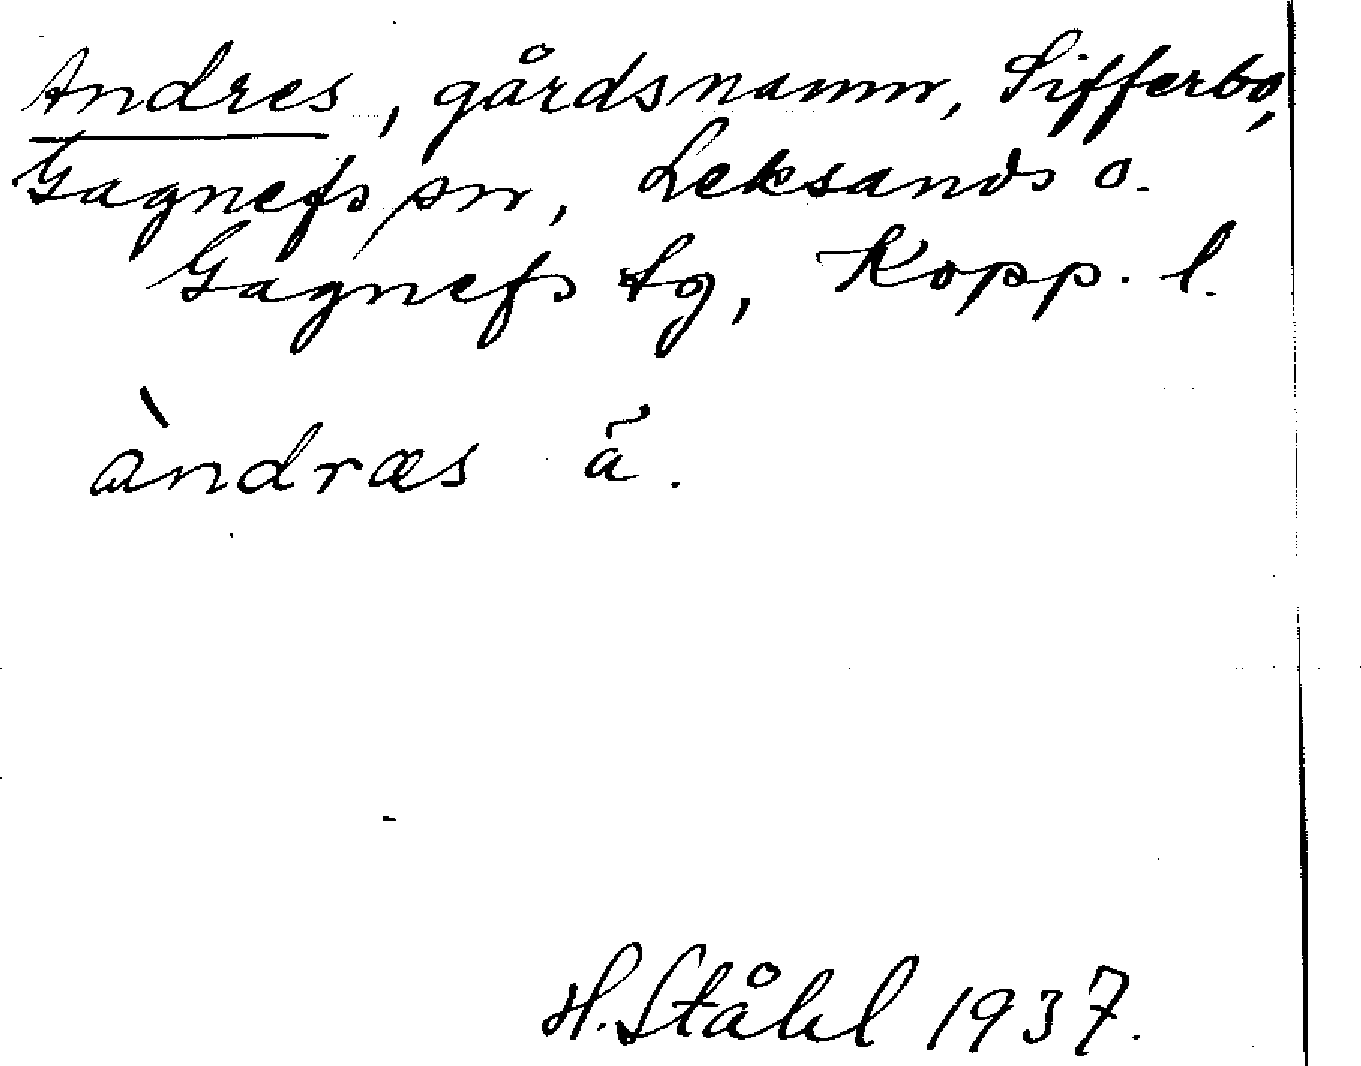 Andres, gårdsnamn, Sifferbo,
Gagnefs sn, Leksands o.
Gagnefs tg, Kopp. l.
àndræs ã.
H. Ståhl 1937.